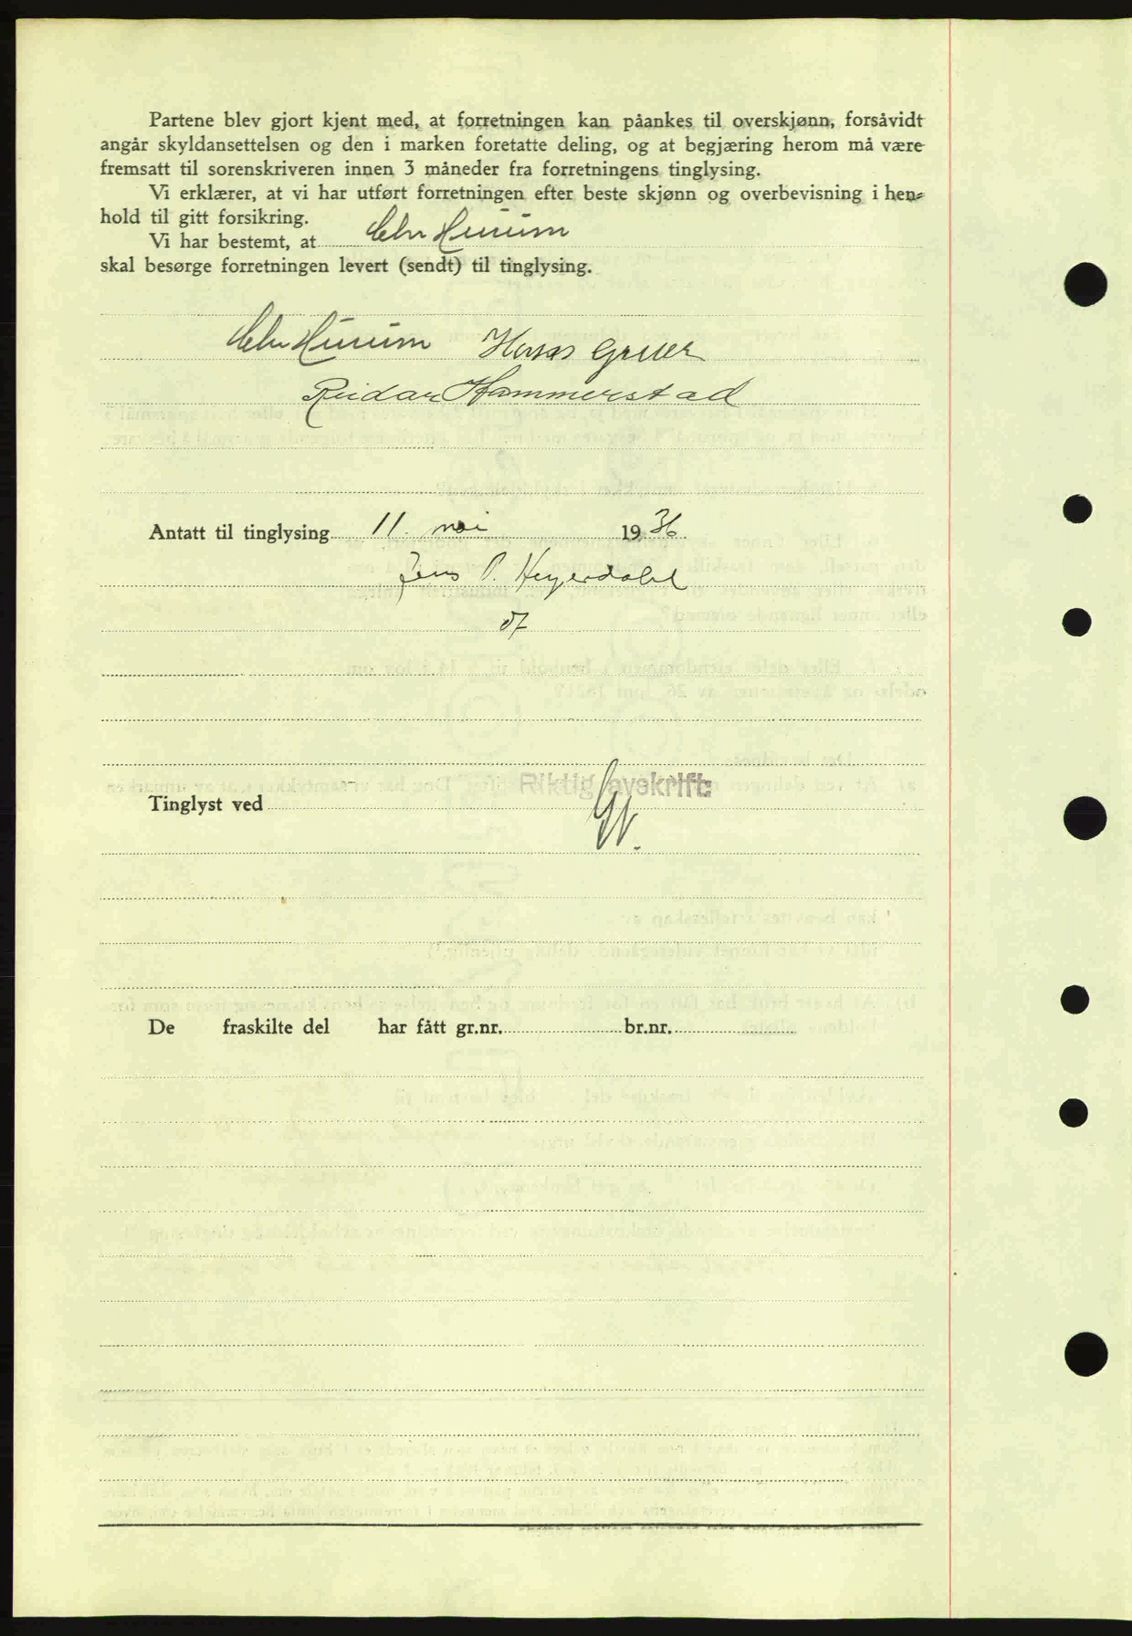 Partene blev gjort kjent med, at forretningen kan påankes til overskjønn, forsåvidt
angår skyldansettelsen og den i marken foretatte deling, og at begjæring herom må være
fremsatt til sorenskriveren innen 3 måneder fra forretningens tinglysing.
Vi erklærer, at vi har utført forretningen efter beste skjønn og overbevisning i hen-
hold til gitt forsikring.
Vi har bestemt, at Chr Hurum
skal besørge forretningen levert (sendt) til tinglysing.
Chr Hurum Hans
Reidar Hammerstad
Antatt til tinglysing 11. mai 1936.
Jens P. Heyerdahl
Riktig avskrift:
Tinglyst ved
De fraskilte del har fått gr.nr. br.nr.